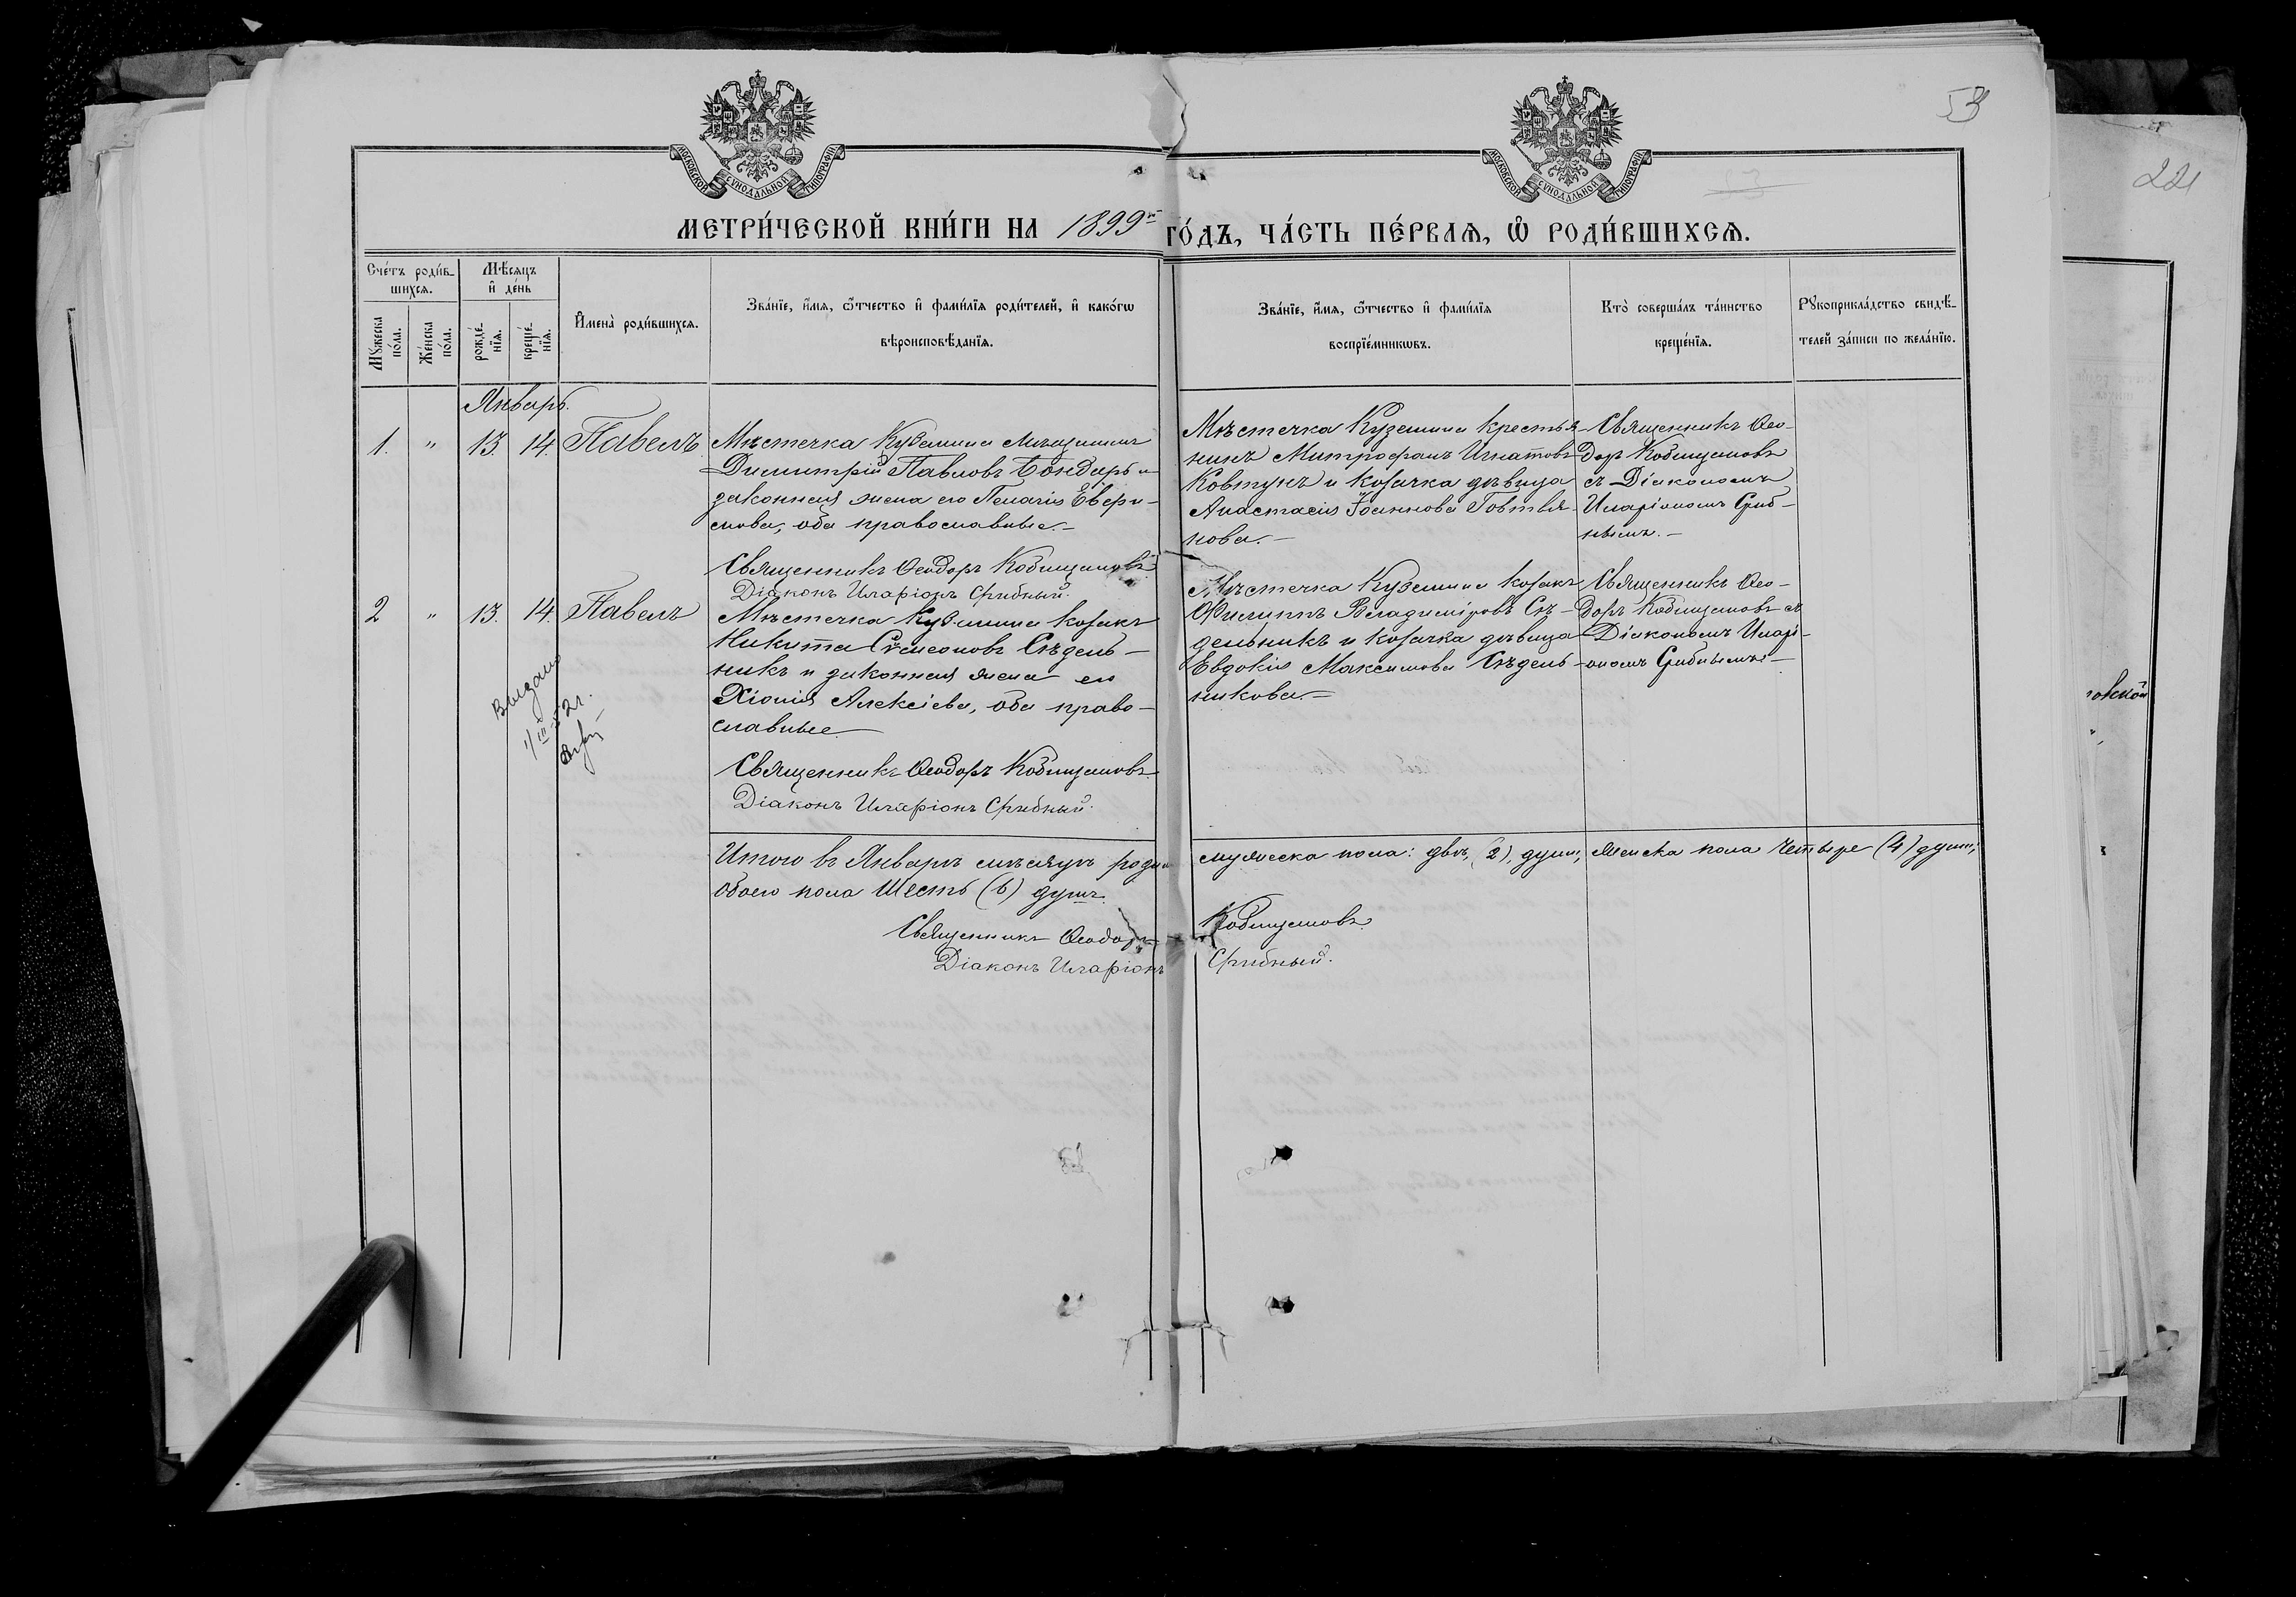 53
221
МОСКОВСКОЙ СУНОДАЛЬНОЙ ТИПОГРАФІИ
МОСКОВСКОЙ СУНОДАЛЬНОЙ ТИПОГРАФІИ
МЕТРИ́ЧЕСКОЙ КНИ́ГИ НА 1899й ГО́ДЪ, ЧА́СТЬ ПЕ́РВАѦ, Ѡ РОДИ́ВШИХСѦ.
Сче́тъ роди́в-
шихсѧ.
Мꙋ́жеска по́ла.
Же́нска по́ла.
Мѣ́сяцъ
и҆ де́нь
рожде́нїѧ.
креще́нїѧ.
И҆мена̀ роди́вшихсѧ.
Зва́нїе, и҆́мѧ, ѻ҆́тчество и҆ фами́лїѧ роди́телей, и҆ како́гѡ
вѣроисповѣ́данїѧ.
Зва́нїе, и҆́мѧ, ѻ҆́тчество и҆ фами́лїѧ
воспрїе́мникѡвъ.
Кто̀ соверша́лъ та́инство
креще́нїѧ.
Рꙋкоприкла́дство свидѣ́-
телей за́писи по жела́нїю.
Январь.
1. " 13. 14. Павелъ
Мѣстечка Куземина мѣщанинъ
Димитрій Павловъ Бондарь и
законная жена его Пелагія Евфи-
мова, оба православные.-
Священникъ Ѳеодоръ Кобищановъ
Діаконъ Иларіонъ Срибный.
Мѣстечка Куземина крестья-
нинъ Митрофанъ Игнатовъ
Ковтунъ и козачка дѣвица
Анастасія Іоаннова Говтвя-
нова.-
Священникъ Ѳео-
доръ Кобищановъ
съ Діакономъ
Иларіономъ Сриб-
нымъ.-
2 " 13. 14. Павелъ
Мѣстечка Куземина козакъ
Никита Симеоновъ Сѣдель-
никъ и законная жена его
Хіонія Алексіева, оба право-
славные
Священникъ Ѳеодоръ Кобищановъ.
Діаконъ Иларіонъ Срибный.
Мѣстечка Куземина козакъ
Филиппъ Владиміровъ Сѣ-
дельникъ и козачка дѣвица
Евдокія Максимова Сѣдель-
никова.-
Священникъ Ѳео-
доръ Кобищановъ съ
Діакономъ Иларі-
ономъ Срибнымъ-
Выдано
Итого въ Январѣ мѣсяцѣ роди
мужеска пола: двѣ, (2), души, женска пола четыре (4) души,
обоего пола Шесть (6) душъ.
Священникъ Ѳеодоръ Кобищановъ
Діаконъ Иларіонъ Срибный.